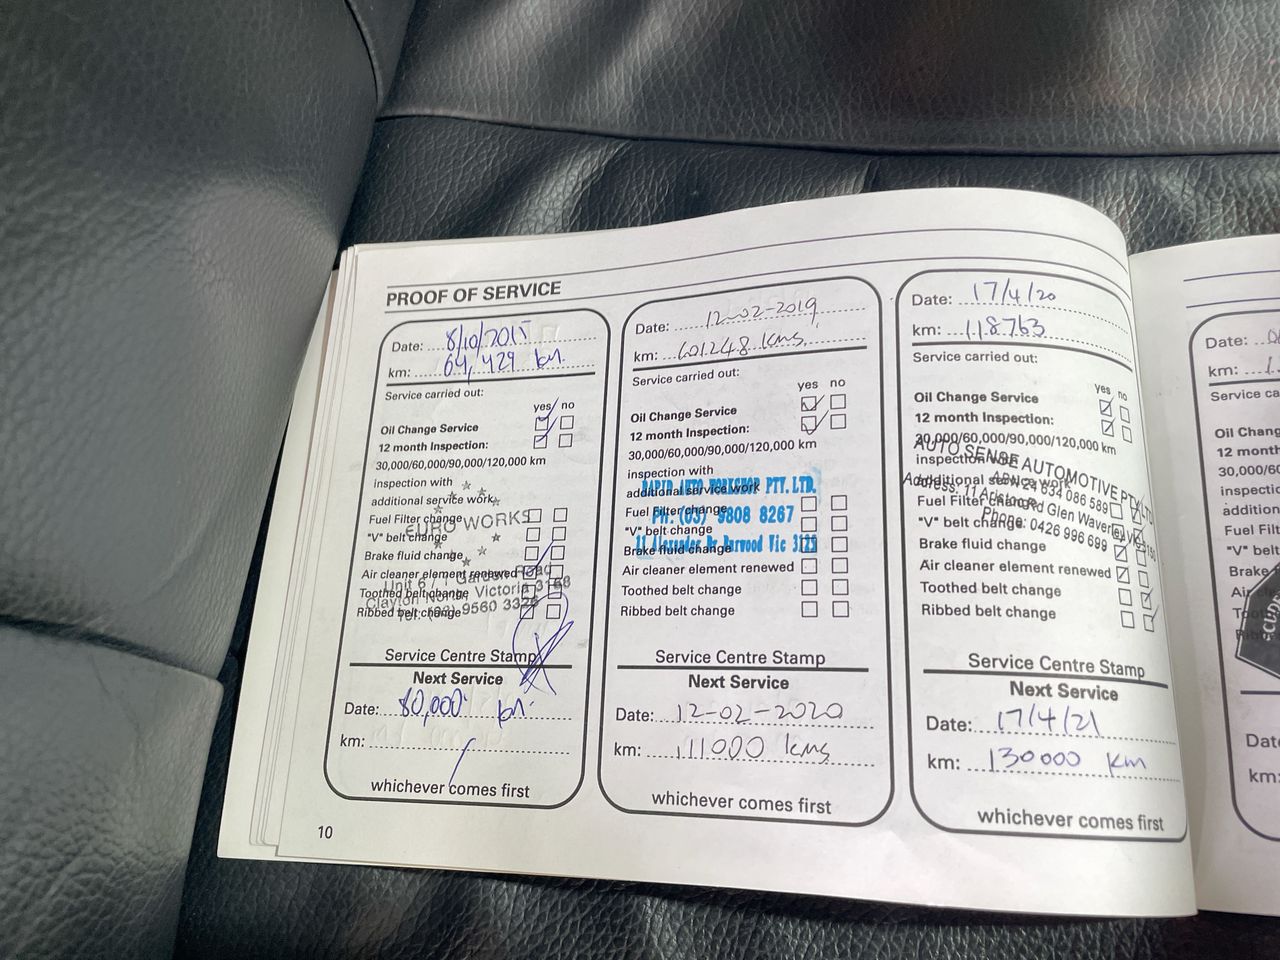 PROOF OF SERVICE
Date: 8/10/2015
km: 64,429 km.
Service carried out:
yes no
Oil Change Service
12 month Inspection:
30,000/60,000/90,000/120,000 km
inspection with
additional service work
Fuel Filter change
EURO WORKS
"V" belt change
Brake fluid change
Air cleaner element renewed
Unit 6 / 1 Garden Road
Toothed belt change
Clayton North Victoria 3168
Ribbed belt change
Tel: (03) 9560
Service Centre Stamp
Next Service
Date: 80,000 km.
km:
whichever comes first
10
Date: 12-02-2019
km: 101248 kms
Service carried out:
yes no
Oil Change Service
12 month Inspection:
30,000/60,000/90,000/120,000 km
inspection with
additional service work
RAPID AUTO WORKSHOP PTY. LTD.
Fuel Filter change
PH: (03) 9808 8267
"V" belt change
11 Alexander Burwood Vic 3125
Brake fluid change
Air cleaner element renewed
Toothed belt change
Ribbed belt change
Service Centre Stamp
Next Service
Date: 12-02-2020
km: 111000 kms
whichever comes first
Date: 17/4/20
km: 118763
Service carried out:
yes no
Oil Change Service
12 month Inspection:
30,000/60,000/90,000/120,000 km
AUTO SENSE AUTOMOTIVE PTY LTD
inspection with
ABN 24 634 086 589
additional service work
Address: 11 Rd Glen Waverley VIC 3150
Fuel Filter change
Phone: 0426 996 699
"V" belt change
Brake fluid change
Air cleaner element renewed
Toothed belt change
Ribbed belt change
Service Centre Stamp
Next Service
Date: 17/4/21
km: 130000 km
whichever comes first
Date:
km:
Service ca
Oil Chang
12 month
30,000/60
inspectio
addition
Fuel Filt
"V" belt
Brake
Air
Date
km: